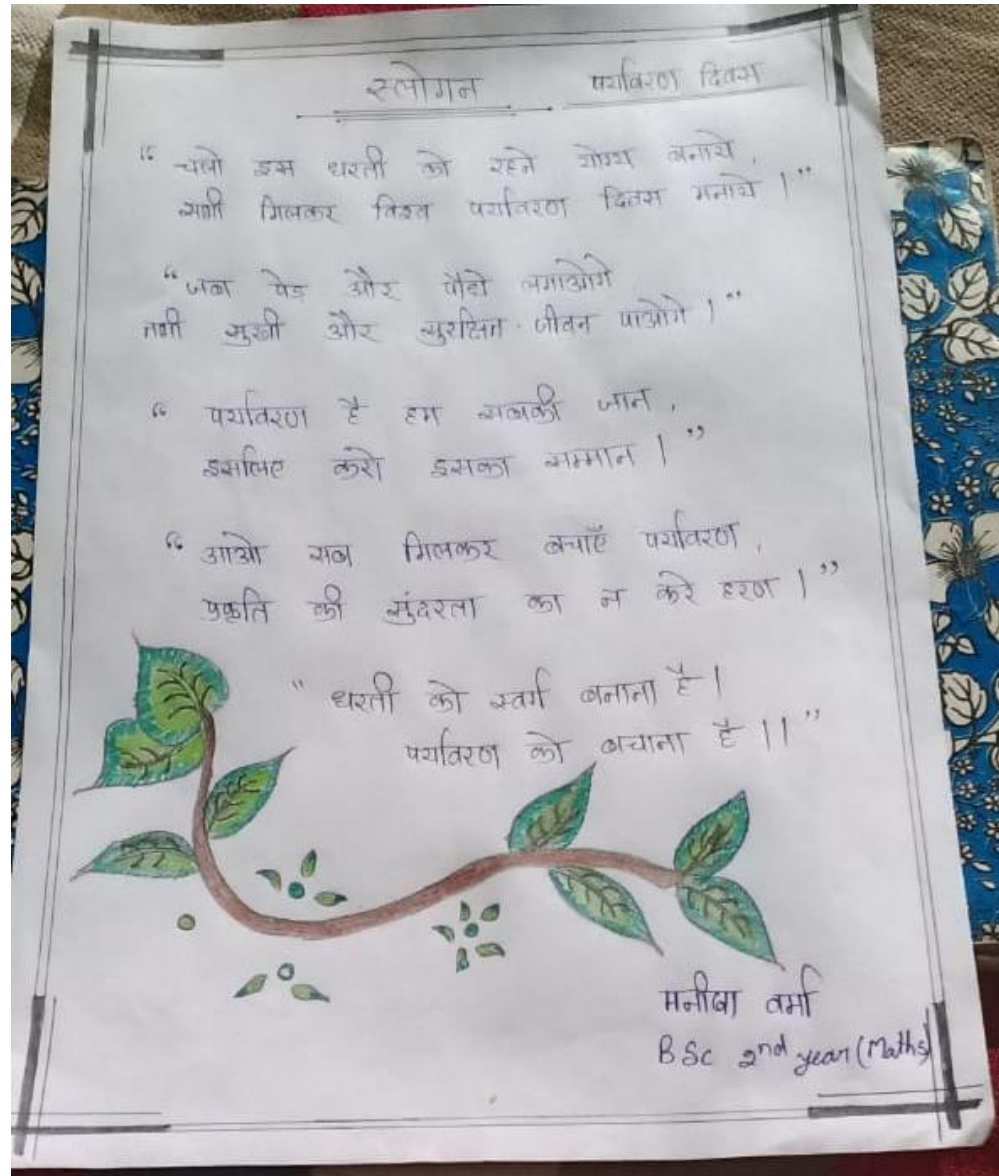 स्लोगन पर्यावरण दिवस
“ चलो इस धरती को रहने योग्य बनाये,
सभी मिलकर विश्व पर्यावरण दिवस मनाये ।”
“जब पेड़ और पौधे लगाओगे
तभी सुखी और सुरक्षित जीवन पाओगे ।”
“ पर्यावरण है हम सबकी जान,
इसलिए करो इसका सम्मान ।”
“ आओ सब मिलकर बचाएँ पर्यावरण,
प्रकृति की सुंदरता का न करे हरण ।”
“ धरती को स्वर्ग बनाना है।
पर्यावरण को बचाना है ।।”
मनीषा वर्मा
BSc 2nd year (Maths)